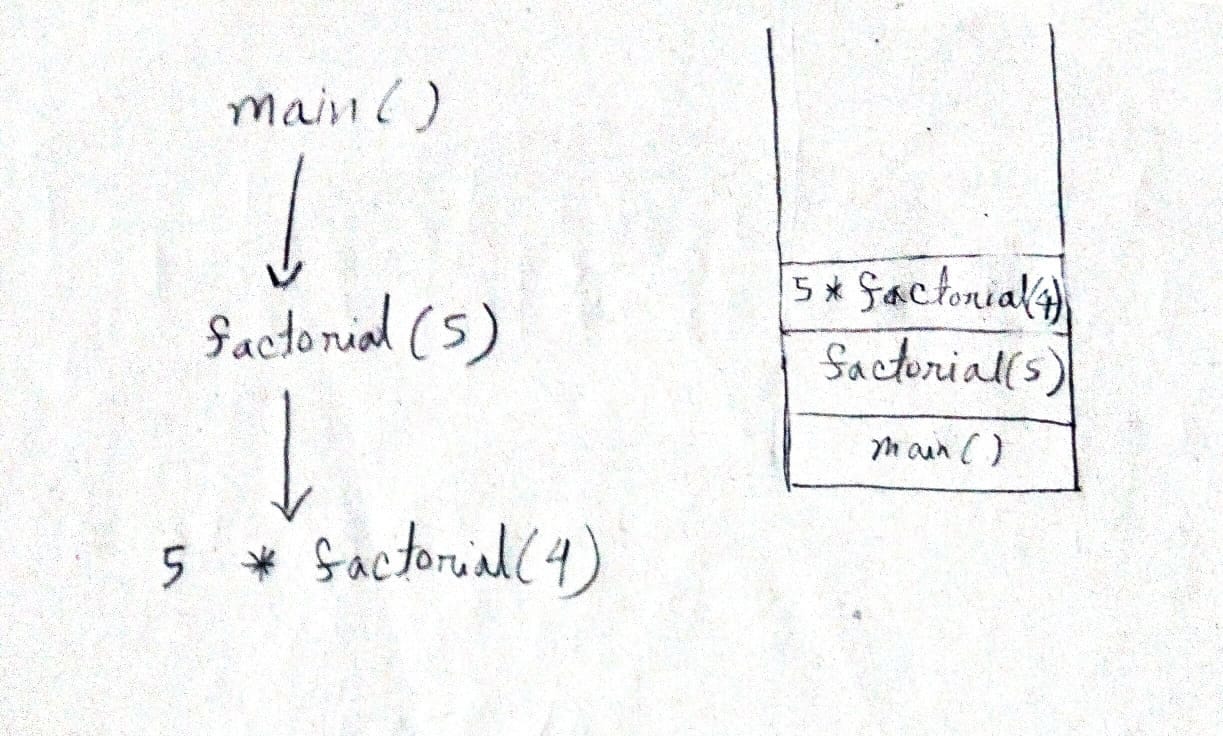 main()
factorial(5)
5 * factorial(4)
5 * factorial(4)
factorial(5)
main()